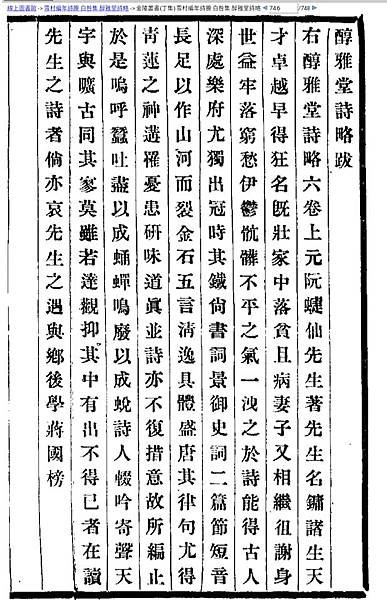 線上圖書館 -> 雪村編年詩賸 白咎集 醇雅堂詩略 -> 金陵叢書(丁集)雪村編年詩賸 白咎集 醇雅堂詩略 746 /748
醇雅堂詩略跋
右醇雅堂詩略六卷上元阮䗖仙先生著先生名鏞諸生天
才卓越早得狂名旣壯家中落貧且病妻子又相繼徂謝身
世益牢落窮愁伊鬱骯髒不平之氣一洩之於詩能得古人
深處樂府尤獨出冠時其鐵尙書詞景御史詞二篇節短音
長足以作山河而裂金石五言淸逸具體盛唐其律句尤得
靑蓮之神遘罹憂患研味道眞並詩亦不復措意故所編止
於是嗚呼蠶吐盡以成蛹蟬鳴廢以成蛻詩人輟吟寄聲天
宇與曠古同其寥莫雖若達觀抑其中有出不得已者在讀
先生之詩者倘亦哀先生之遇與鄕後學蔣國榜